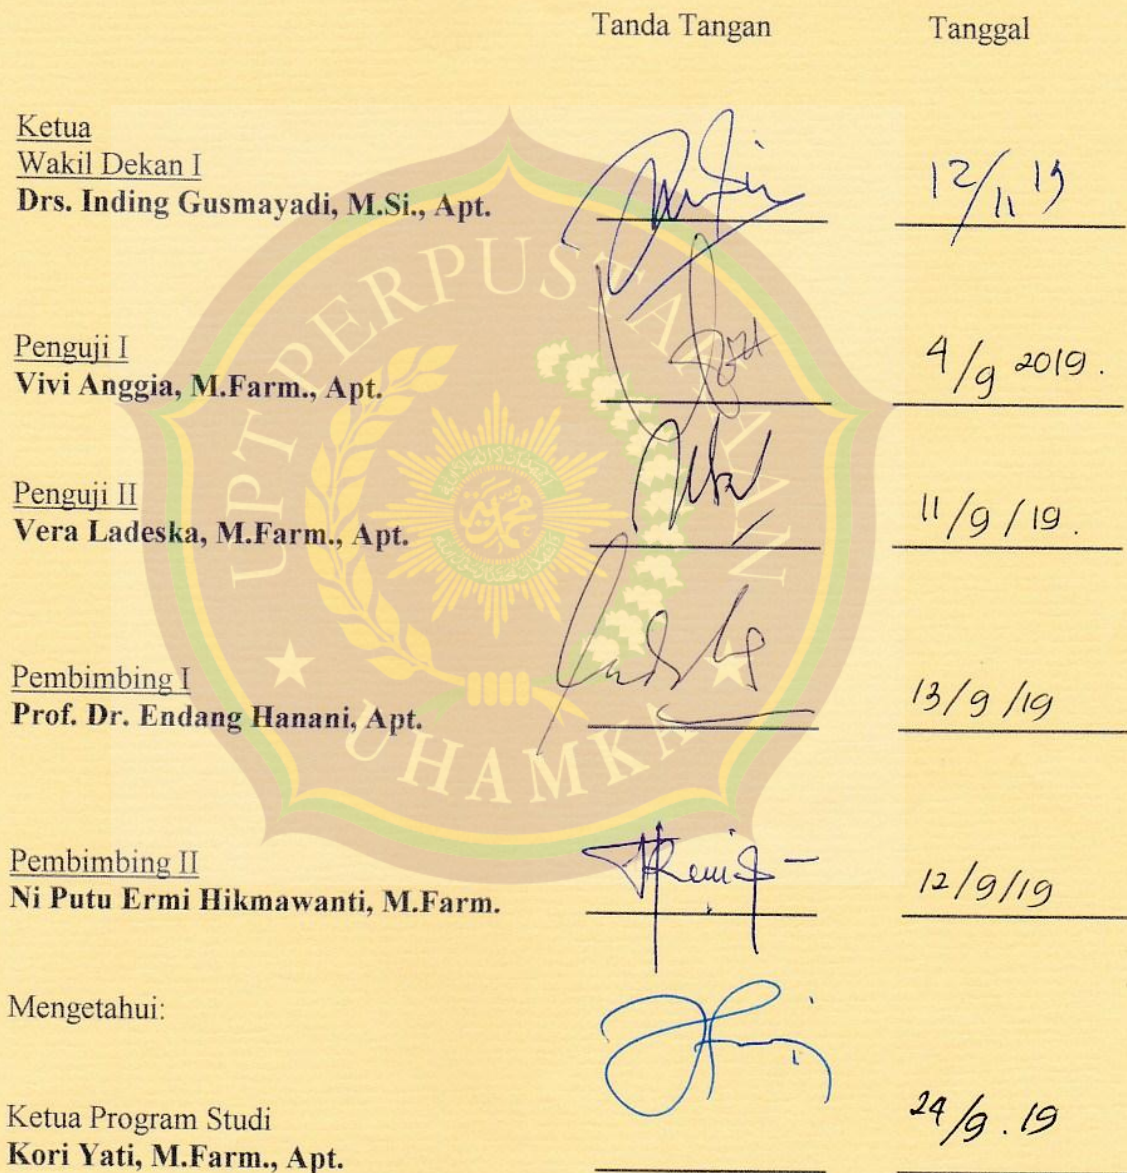 Tanda Tangan Tanggal
Ketua
Wakil Dekan I
Drs. Inding Gusmayadi, M.Si., Apt. 12/11 19
Penguji I
Vivi Anggia, M.Farm., Apt. 4/9 2019.
Penguji II
Vera Ladeska, M.Farm., Apt. 11/9/19.
Pembimbing I
Prof. Dr. Endang Hanani, Apt. 13/9/19
Pembimbing II
Ni Putu Ermi Hikmawanti, M.Farm. 12/9/19
Mengetahui:
Ketua Program Studi 24/9.19
Kori Yati, M.Farm., Apt.
UPT PERPUSTAKAAN
UHAMKA